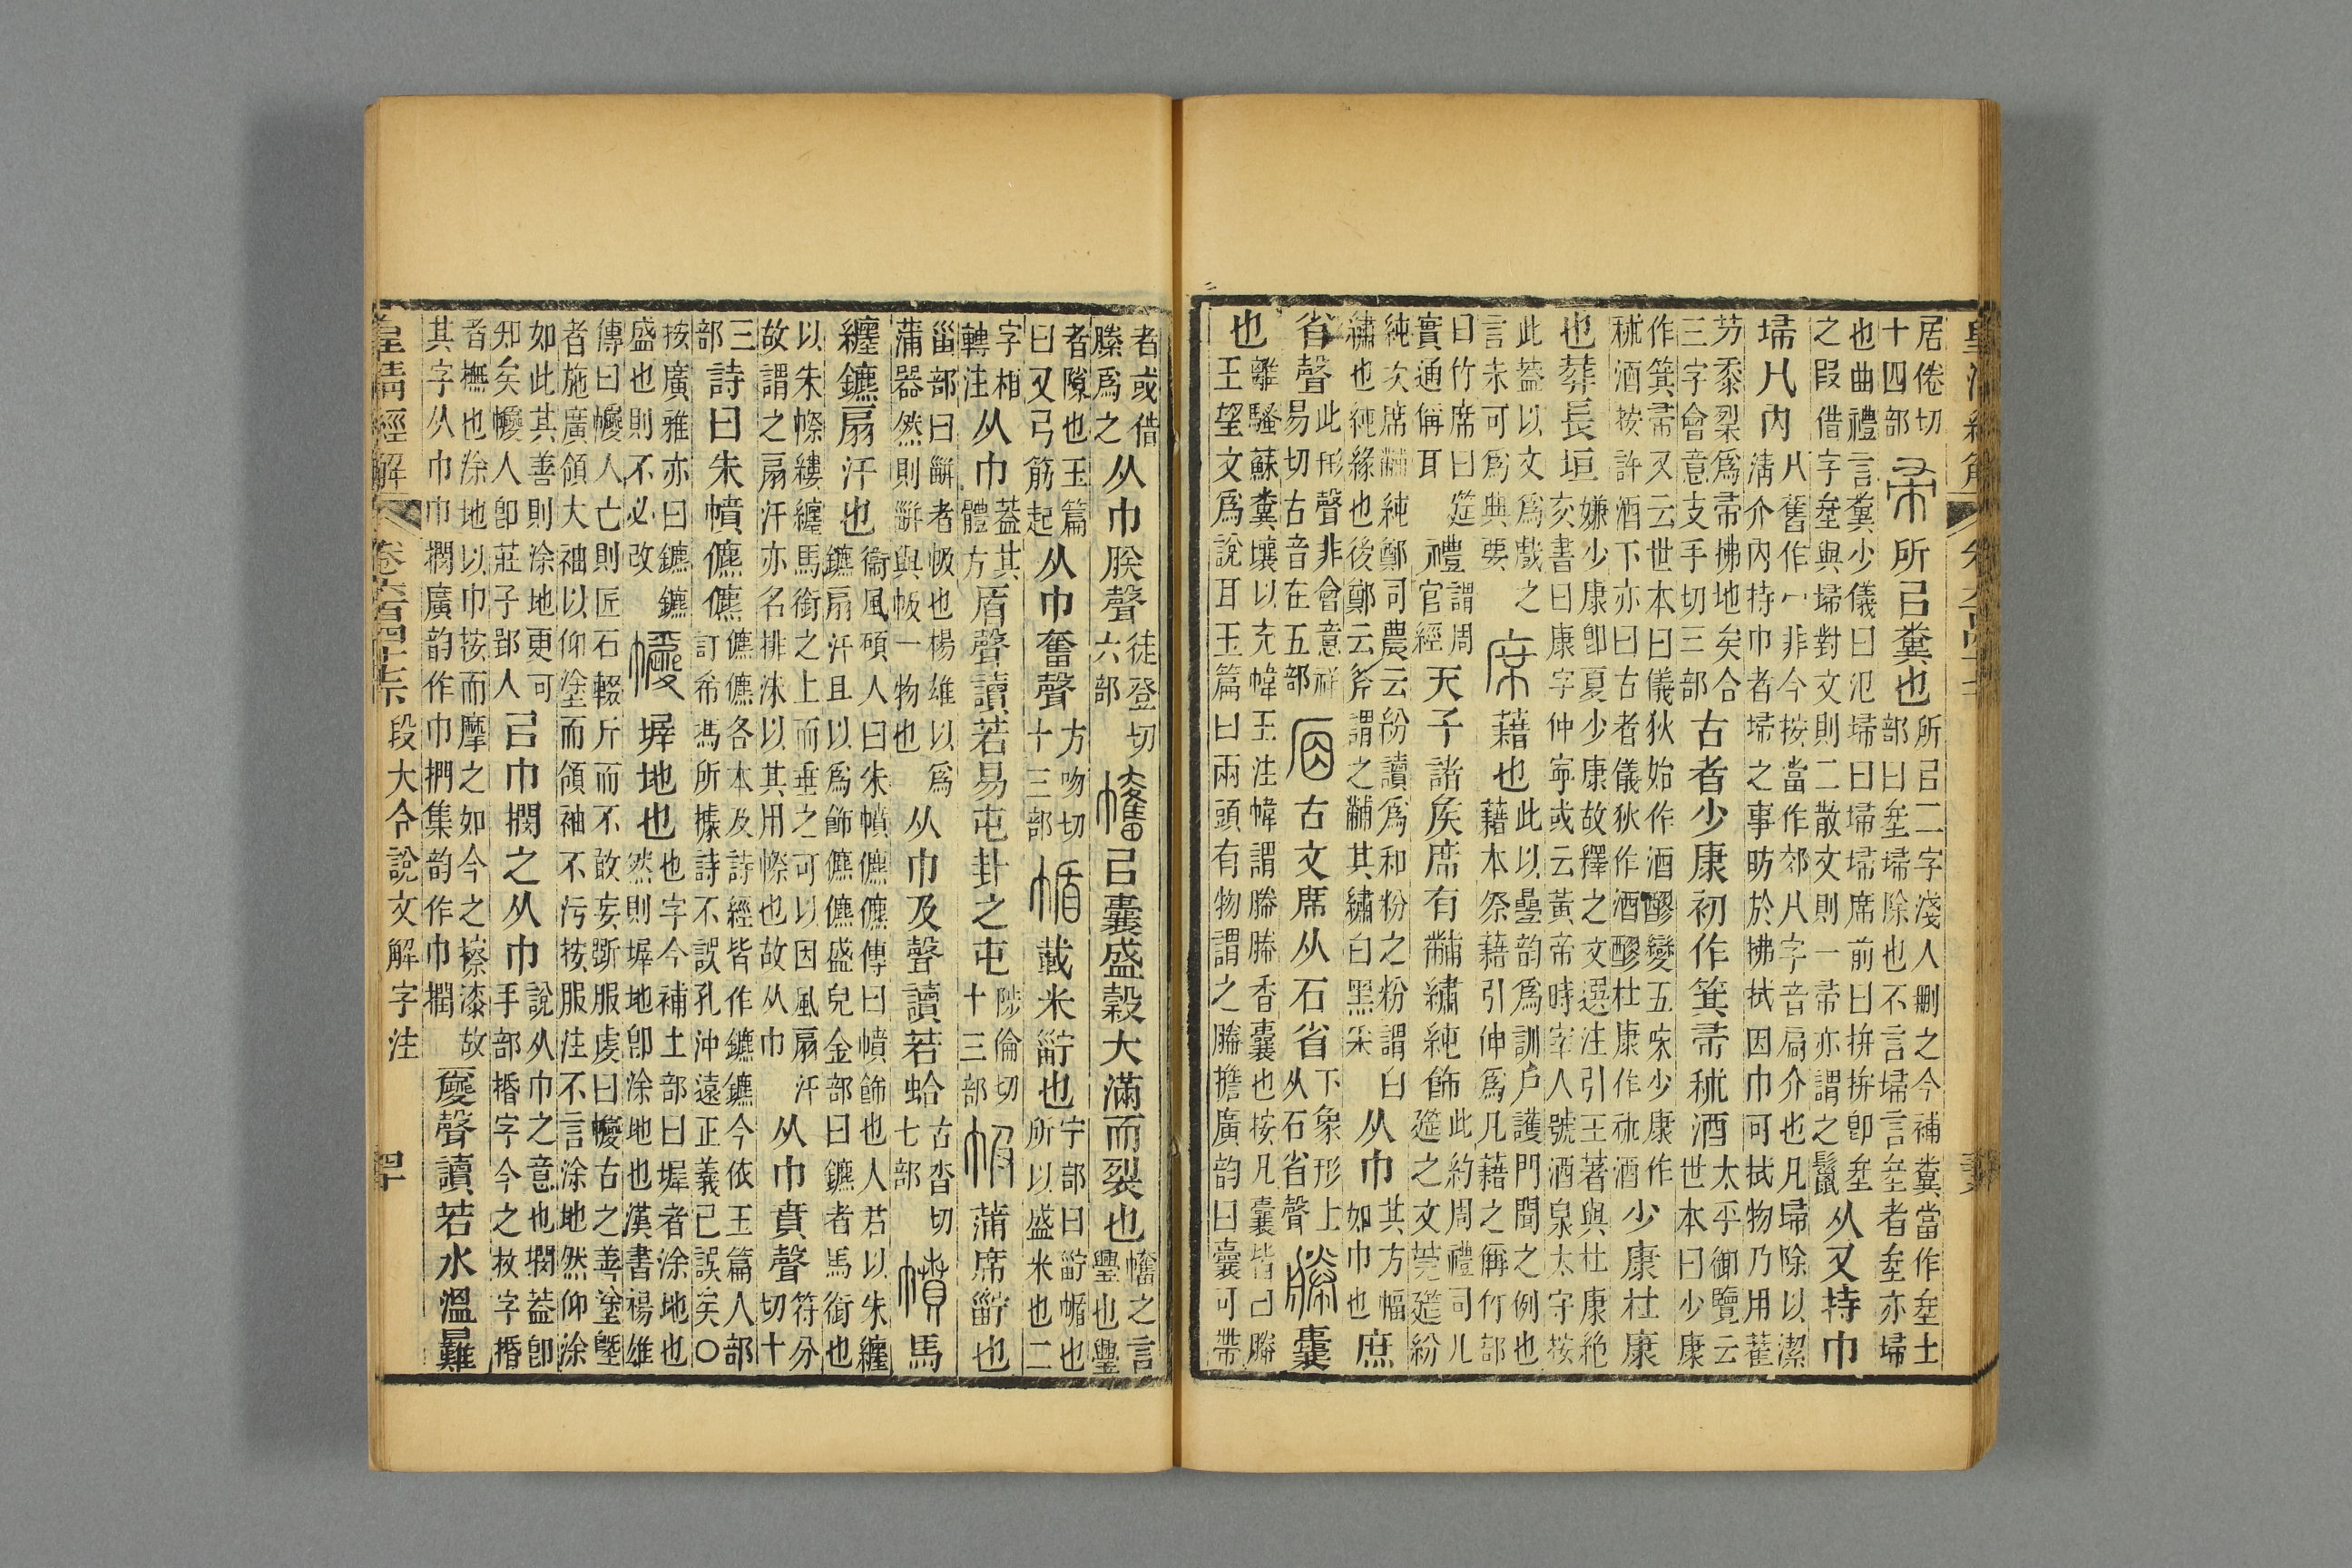 皇淸經解
居倦切十四部帚所㠯糞也所㠯二字淺人刪之今補糞當作坌土部曰坌埽除也不言埽言坌者坌亦埽
也曲禮言糞少儀曰氾埽曰埽埽席前曰拚拚卽坌之叚借字坌與埽對文則二散文則一帚亦謂之鬣从又持巾
埽八內八舊作冖非今按當作郊八字音扃介也凡埽除以潔淸介內持巾者埽之事昉於拂拭因巾可拭物乃用萑
芀黍㮚爲帚拂地矣合三字會意支手切三部古者少康初作箕帚秫酒太平御覽云世本曰少康
作箕帚又云世本曰儀狄始作酒醪變五味少康作秫酒按許酒下亦曰古者儀狄作酒醪杜康作秫酒少康杜康
也葬長垣嫌少康卽夏少康故釋之文選注引王著與杜康絶亥書曰康字仲寧或云黃帝時宰人號酒泉太守按
此葢以文爲戲之言未可爲典要席藉也此以曡韵爲訓戶護門聞之例也藉本祭藉引伸爲凡藉之偁竹部
曰竹席曰筵實通偁耳禮謂周官經天子諸矦席有黼繡純飾此約周禮司几筵之文莞筵紛
純次席黼純鄭司農云紛讀爲和粉之粉謂白繡也純緣也後鄭云斧謂之黼其繡白黑采从巾其方幅如巾也庶
省聲此形聲非會意祥易切古音在五部古文席从石省下象形上从石省聲幐囊
也離騷蘇糞壤以充幃王注幃謂幐幐香囊也按凡囊皆曰幐王望文爲說耳玉篇曰兩頭有物謂之幐擔廣韵曰囊可帶
者或借縢爲之从巾朕聲徒登切六部㠯囊盛穀大滿而裂也之言舋也舋
者隙也玉篇曰又弓筋起从巾奮聲方吻切十三部載米㽀也宁部曰㽀也所以盛米也二
字相轉注从巾葢其體方盾聲讀若易屯卦之屯陟倫切十三部蒲席㽀也
甾部曰者也楊雄以爲蒲器然則與一物也从巾及聲讀若蛤古沓切七部幩馬
纏鑣扇汗也衞風碩人曰朱幩儦儦傳曰幩飾也人君以朱纏鑣扇汗且以爲飾儦儦盛皃金部曰鑣者馬銜也
以朱幏縷纏馬銜之上而垂之可以因風扇汗故謂之扇汗亦名排沬以其用幏也故从巾从巾賁聲符分切十
三部詩曰朱幩儦儦儦儦各本及詩經皆作鑣鑣今依玉篇人部訂希馮所據詩不誤孔沖遠正義已誤矣○
按廣雅亦曰鑣鑣盛也則不必改㡞墀地也也字今補土部曰墀者涂地也然則墀地卽涂地也漢書楊雄
傳曰㡞人亡則匠石輟斤而不敢妄斲服虔曰㡞古之善塗塈者施廣領大袖以仰塗而領袖不污按服注不言涂地然仰涂
如此其善則涂地更可知矣㡞人卽莊子郢人㠯巾撋之从巾說从巾之意也撋葢卽手部㨉字今之抆字㨉
者撫也涂地以巾按而摩之如今之擦漆故其字从巾巾撋廣韵作巾捫集韵作巾撋夒聲讀若水溫㬮
皇淸經解 段大令說文解字注